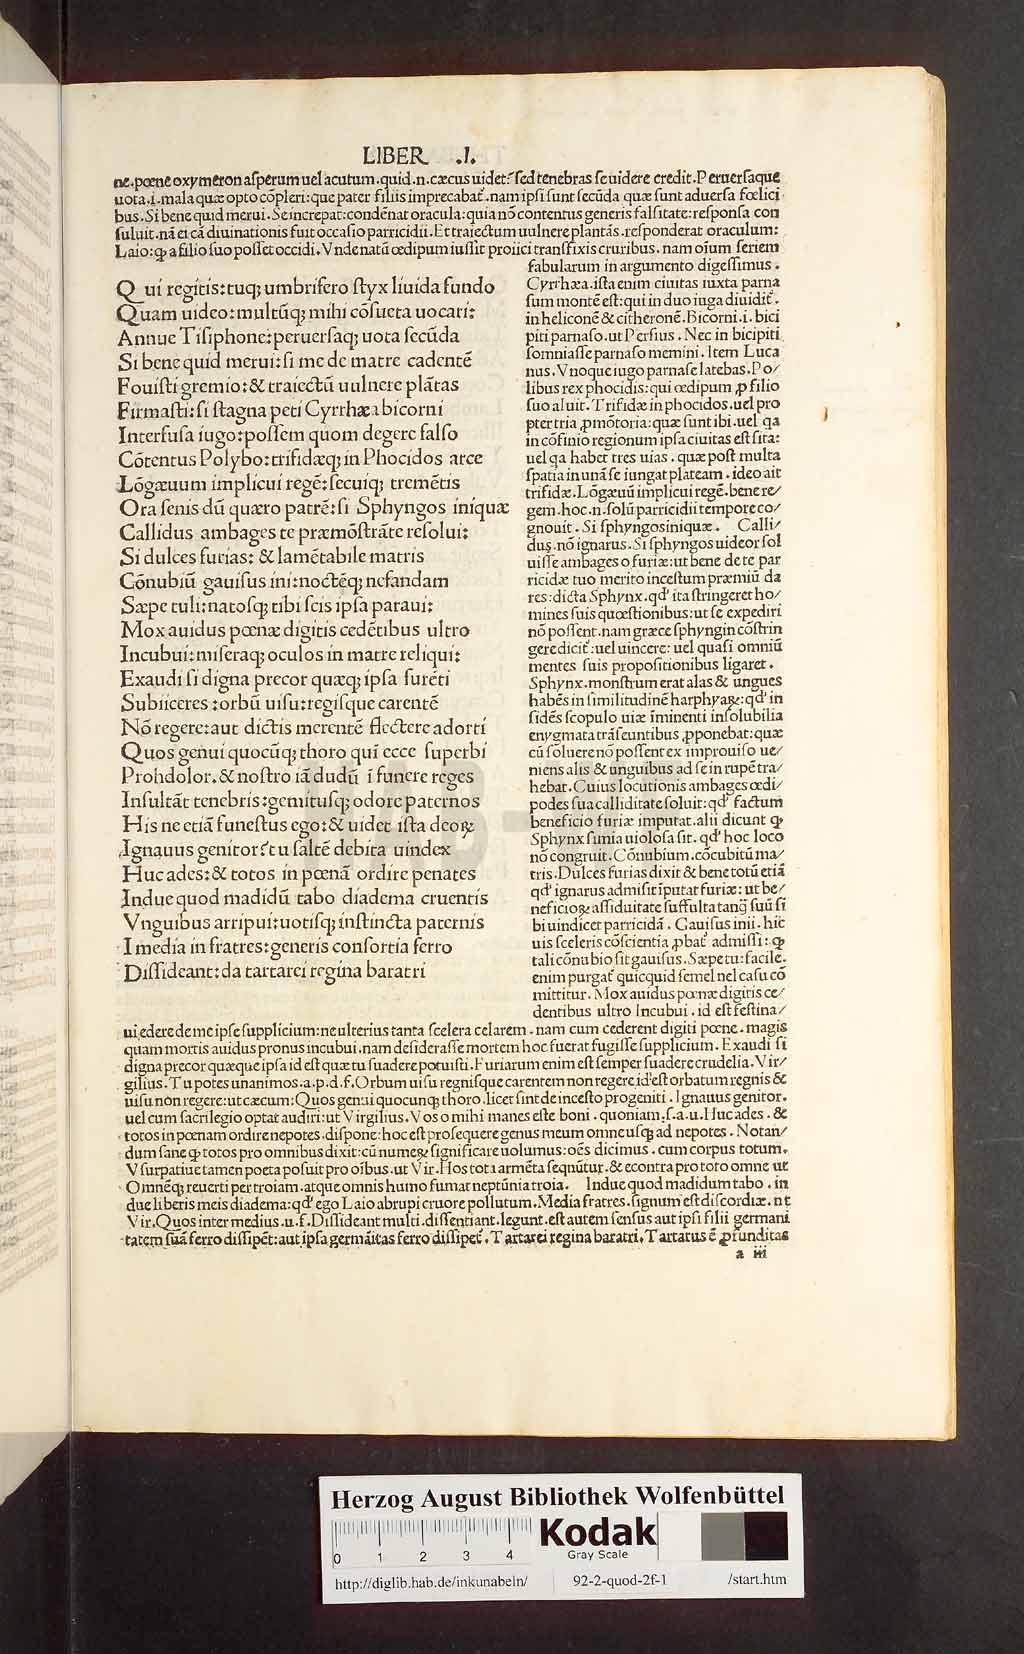 LIBER .I.
ne. pœne oxymeron asperum uel acutum. quid .n. cæcus uidet? sed tenebras se uidere credit. Peruersaque
uota .i. mala quæ opto cōpleri: que pater filiis imprecabat᷑. nam ipsi sunt secūda quæ sunt aduersa fœlici
bus. Si bene quid merui. Se increpat: condēnat oracula: quia nō contentus generis falsitate: responsa con
suluit. nā ei cā diuinationis fuit occasio parricidii. Et traiectum uulnere plantās. responderat oraculum:
Laio: ꝙ a filio suo posset occidi. Vnde natū œdipum iussit proiici transfixis cruribus. nam oīum seriem
fabularum in argumento digessimus.
Qui regitis: tuq; umbrifero styx liuida fundo
Quam uideo: multūq; mihi cōsueta uocari:
Annue Tisiphone: peruersaq; uota secūda
Si bene quid merui: si me de matre cadentē
Fouisti gremio: & traiectū uulnere plātas
Firmasti: si stagna peti Cyrrhæa bicorni
Interfusa iugo: possem quom degere falso
Cōtentus Polybo: trifidæq; in Phocidos arce
Lōgæuum implicui regē: secuiq; tremētis
Ora senis dū quæro patrē: si Sphyngos iniquæ
Callidus ambages te præmōstrāte resolui:
Si dulces furias: & lamētabile matris
Cōnubiū gauisus ini: noctēq; nefandam
Sæpe tuli: natosq; tibi scis ipsa paraui:
Mox auidus pœnæ digitis cedētibus ultro
Incubui: miseraq; oculos in matre reliqui:
Exaudi si digna precor quæq; ipsa furēti
Subiiceres: orbū uisu: regisque carentē
Nō regere: aut dictis merentē flectere adorti
Quos genui quocūq; thoro qui ecce superbi
Prohdolor. & nostro iā dudū ī funere reges
Insultāt tenebris: gemitusq; odore paternos
His ne etiā funestus ego: & uidet ista deoꝝ
Ignauus genitor? tu saltē debita uindex
Huc ades: & totos in pœnā ordire penates
Indue quod madidū tabo diadema cruentis
Vnguibus arripui: uotisq; instincta paternis
I media in fratres: generis consortia ferro
Dissideant: da tartarei regina baratri
Cyrrhæa. ista enim ciuitas iuxta parna
sum montē est: qui in duo iuga diuidit᷑.
in heliconē & citheronē. Bicorni .i. bici
piti parnaso. ut Persius. Nec in bicipiti
somniasse parnaso memini. Item Luca
nus. Vnoque iugo parnase latebas. Po/
libus rex phocidis: qui œdipum ꝓ filio
suo aluit. Trifidæ in phocidos. uel pro
pter tria ꝓmōtoria: quæ sunt ibi. uel qa
in cōfinio regionum ipsa ciuitas est sita:
uel qa habet tres uias. quæ post multa
spatia in unā se iungat plateam. ideo ait
trifidæ. Lōgæuū implicui regē. bene re/
gem. hoc .n. solū parricidii tempore co/
gnouit. Si sphyngos iniquæ. Calli/
dus. nō ignarus. Si sphyngos uideor sol
uisse ambages o furiæ: ut bene de te par
ricidæ tuo merito incestum præmiū da
res: dicta Sphynx. qd' ita stringeret ho/
mines suis quœstionibus: ut se expediri
nō possent. nam græce sphyngin cōstrin
gere dicit᷑: uel uincere: uel quasi omniū
mentes suis propositionibus ligaret.
Sphynx. monstrum erat alas & ungues
habēs in similitudinē harphyaꝝ: qd' in
sidēs scopulo uiæ īminenti insolubilia
enygmata trāseuntibus ꝓponebat: quæ
cū soluere nō possent ex improuiso ue/
niens alis & unguibus ad se in rupē tra/
hebat. Cuius locutionis ambages œdi/
podes sua calliditate soluit: qd' factum
beneficio furiæ imputat. alii dicunt ꝙ
Sphynx simia uiolosa sit. qd' hoc loco
nō congruit. Cōnubium. cōcubitū ma/
tris. Dulces furias dixit & bene totū etiā
qd' ignarus admisit īputat furiæ: ut be/
neficioꝝ assiduitate suffulta tanq̄ suū si
bi uindicet parricidā. Gauisus inii. hic
uis sceleris cōscientia ꝓbat᷑ admissi: ꝙ
tali cōnubio sit gauisus. Sæpe tu: facile.
enim purgat᷑ quicquid semel uel casu cō
mittitur. Mox auidus pœnæ digitis ce/
dentibus ultro Incubui. id est festina/
ui edere de me ipse supplicium: ne ulterius tanta scelera celarem. nam cum cederent digiti pœne. magis
quam mortis auidus pronus incubui. nam desiderasse mortem hoc fuerat fugisse supplicium. Exaudi si
digna precor quæque ipsa id est quæ tu suadere potuisti. Furiarum enim est semper suadere crudelia. Vir/
gilius. Tu potes unanimos .a.p.d.f. Orbum uisu regnisque carentem non regere id'est orbatum regnis &
uisu non regere: ut cæcum: Quos genui quocunq; thoro. licet sint de incesto progeniti. Ignauus genitor.
uel cum sacrilegio optat audiri: ut Virgilius. Vos o mihi manes este boni. quoniam .f.a.u. Huc ades. &
totos in pœnam ordire nepotes. dispone: hoc est prosequere genus meum omne usq; ad nepotes. Notan/
dum sane ꝙ totos pro omnibus dixit: cū numeꝝ significare uolumus: oēs dicimus. cum corpus totum.
Vsurpatiue tamen poeta posuit pro oībus. ut Vir. Hos tota armēta seqnūtur. & econtra pro toto omne ut
Omnēq; reuerti per troiam. atque omnis humo fumat neptūnia troia. Indue quod madidum tabo. in
due liberis meis diadema: qd' ego Laio abrupi cruore pollutum. Media fratres. signum est discordiæ. ut
Vir. Quos inter medius .u.f. Dissideant multi. dissentiant. legunt. est autem sensus aut ipsi filii germani
tatem suā ferro dissipēt: aut ipsa germāitas ferro dissipet᷑. Tartarei regina baratri. Tartarus ē ꝓfunditas
a iii
HAB-W
Herzog August Bibliothek Wolfenbüttel
0 1 2 3 4
Kodak
Gray Scale
http://diglib.hab.de/inkunabeln/ 92-2-quod-2f-1 /start.htm